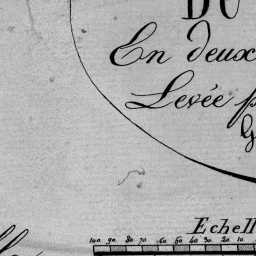 DU
En deux
Levée p
G
Echell
100 90 80 70 60 50 40 30 20 10